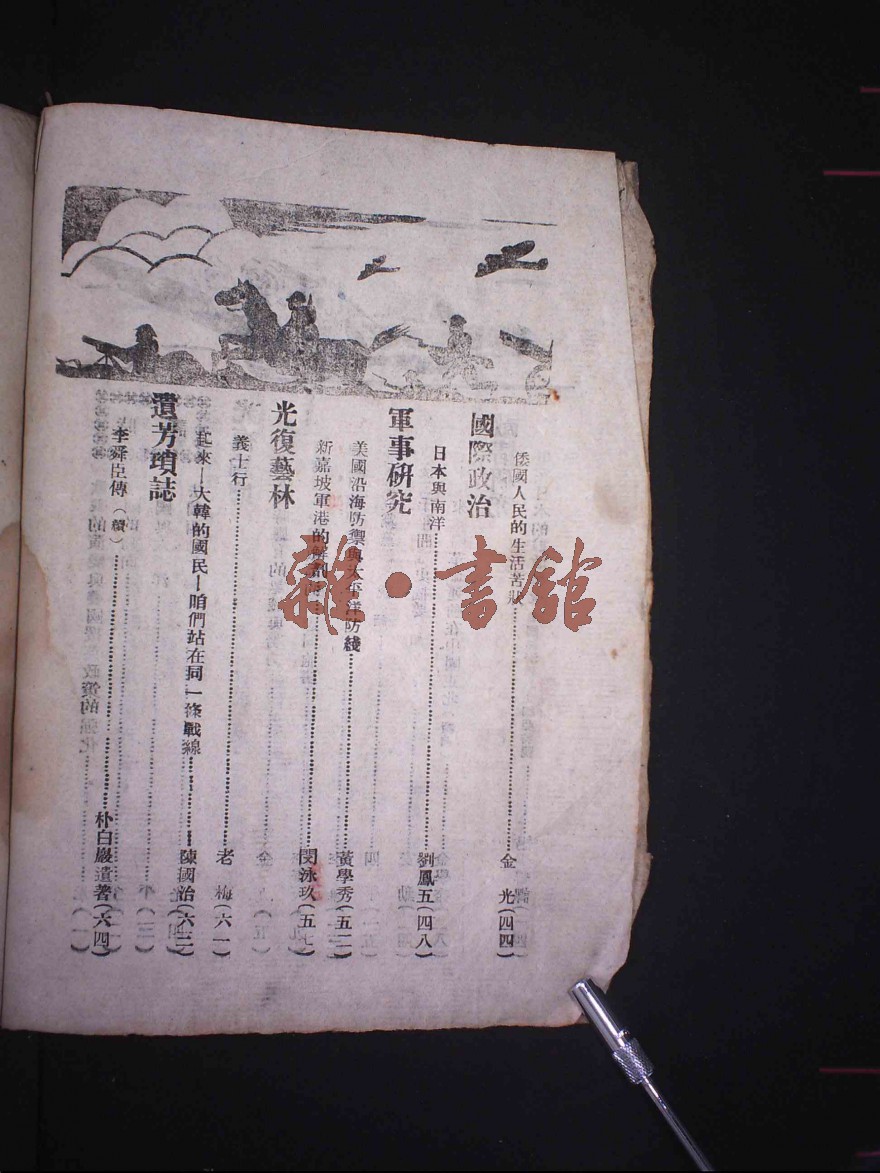 倭國人民的生活苦狀 金光(四四)
國際政治
日本與南洋 劉鳳五(四八)
軍事研究
美國沿海防禦與太平洋防綫 黃學秀(五二)
新嘉坡軍港的解剖 閔泳玖(五七)
光復藝林
義士行 老梅(六一)
起來—大韓的國民—咱們站在同一條戰線 陳國治(六三)
遺芳瑣誌
李舜臣傳(續) 朴白巖遺著(六四)
雜·書館